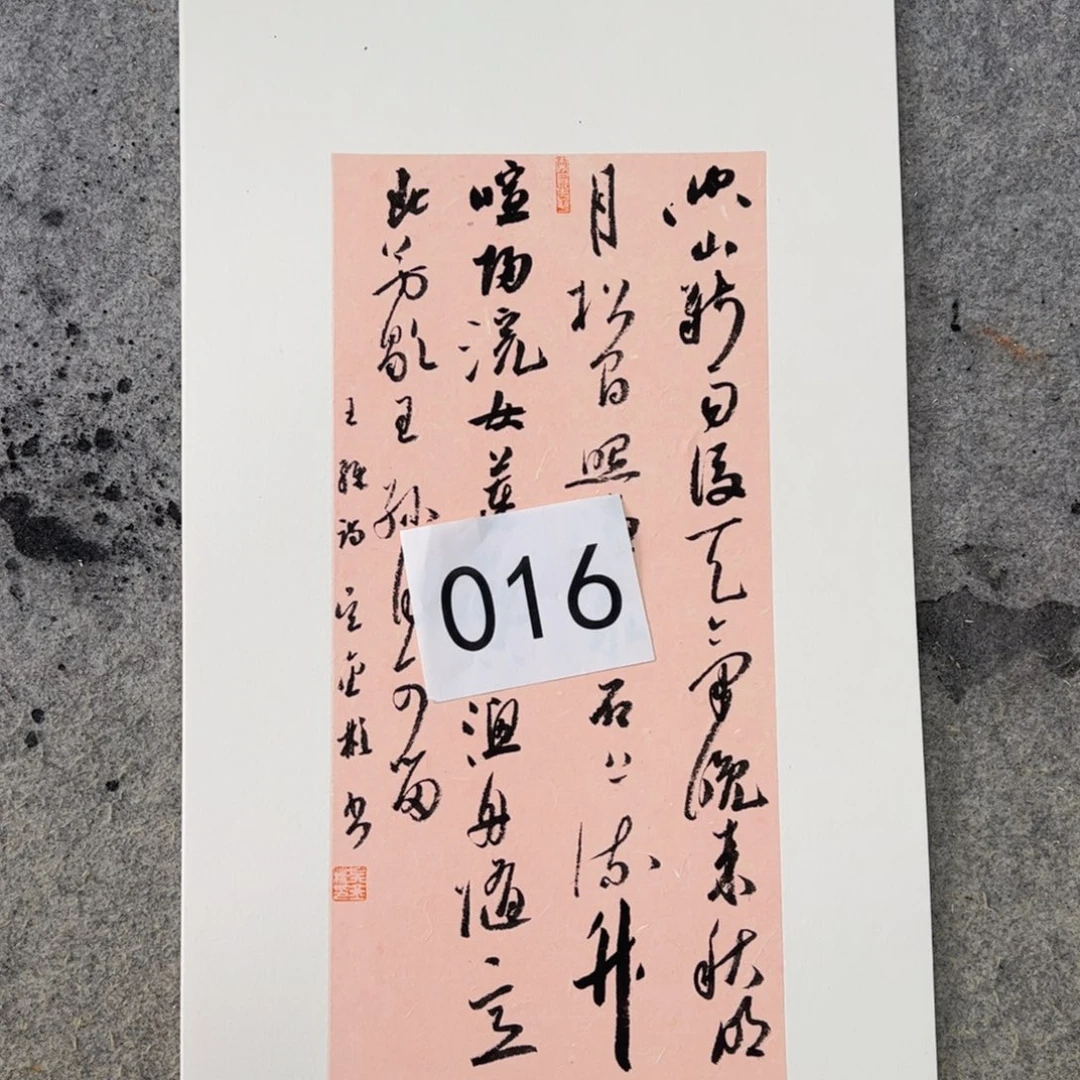 空山新雨後天氣晚來秋明
月松間照石上流竹
喧歸浣女蓮漁舟隨意
春芳歇王孫自可留
王維詩書
016